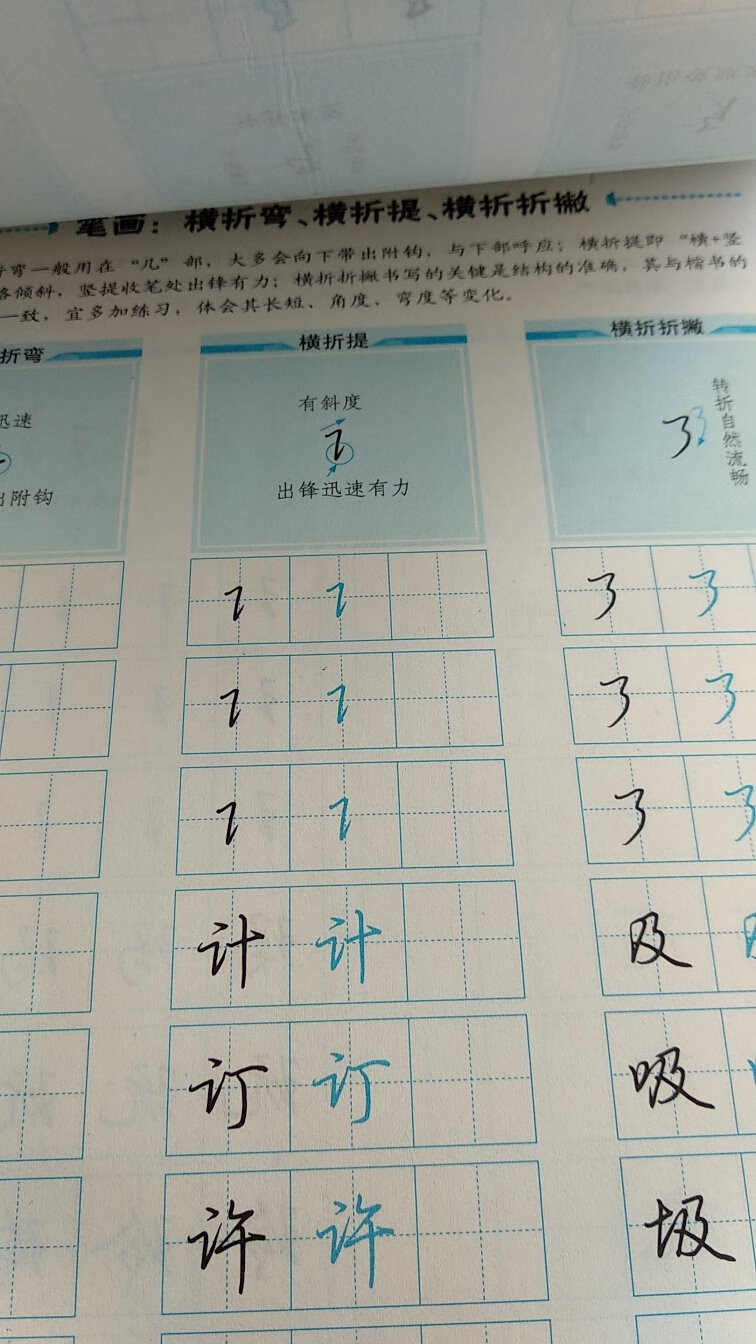 笔画：横折弯、横折提、横折折撇
弯一般用在“几”部，大多会向下带出附钩，与下部呼应；横折提即“横+竖
倾斜，竖提收笔处出锋有力；横折折撇书写的关键是结构的准确，其与楷书的
一致，宜多加练习，体会其长短、角度、弯度等变化。
折弯
迅速
出附钩
横折提
有斜度
出锋迅速有力
横折折撇
转折自然流畅
计 计
订 订
许 许
及
吸
圾